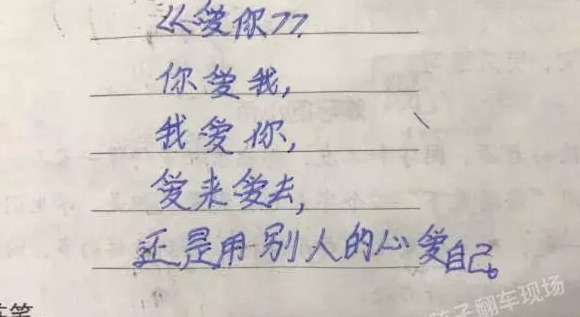 《爱你》
你爱我,
我爱你,
爱来爱去,
还是用别人的心爱自己。
孩子翻车现场